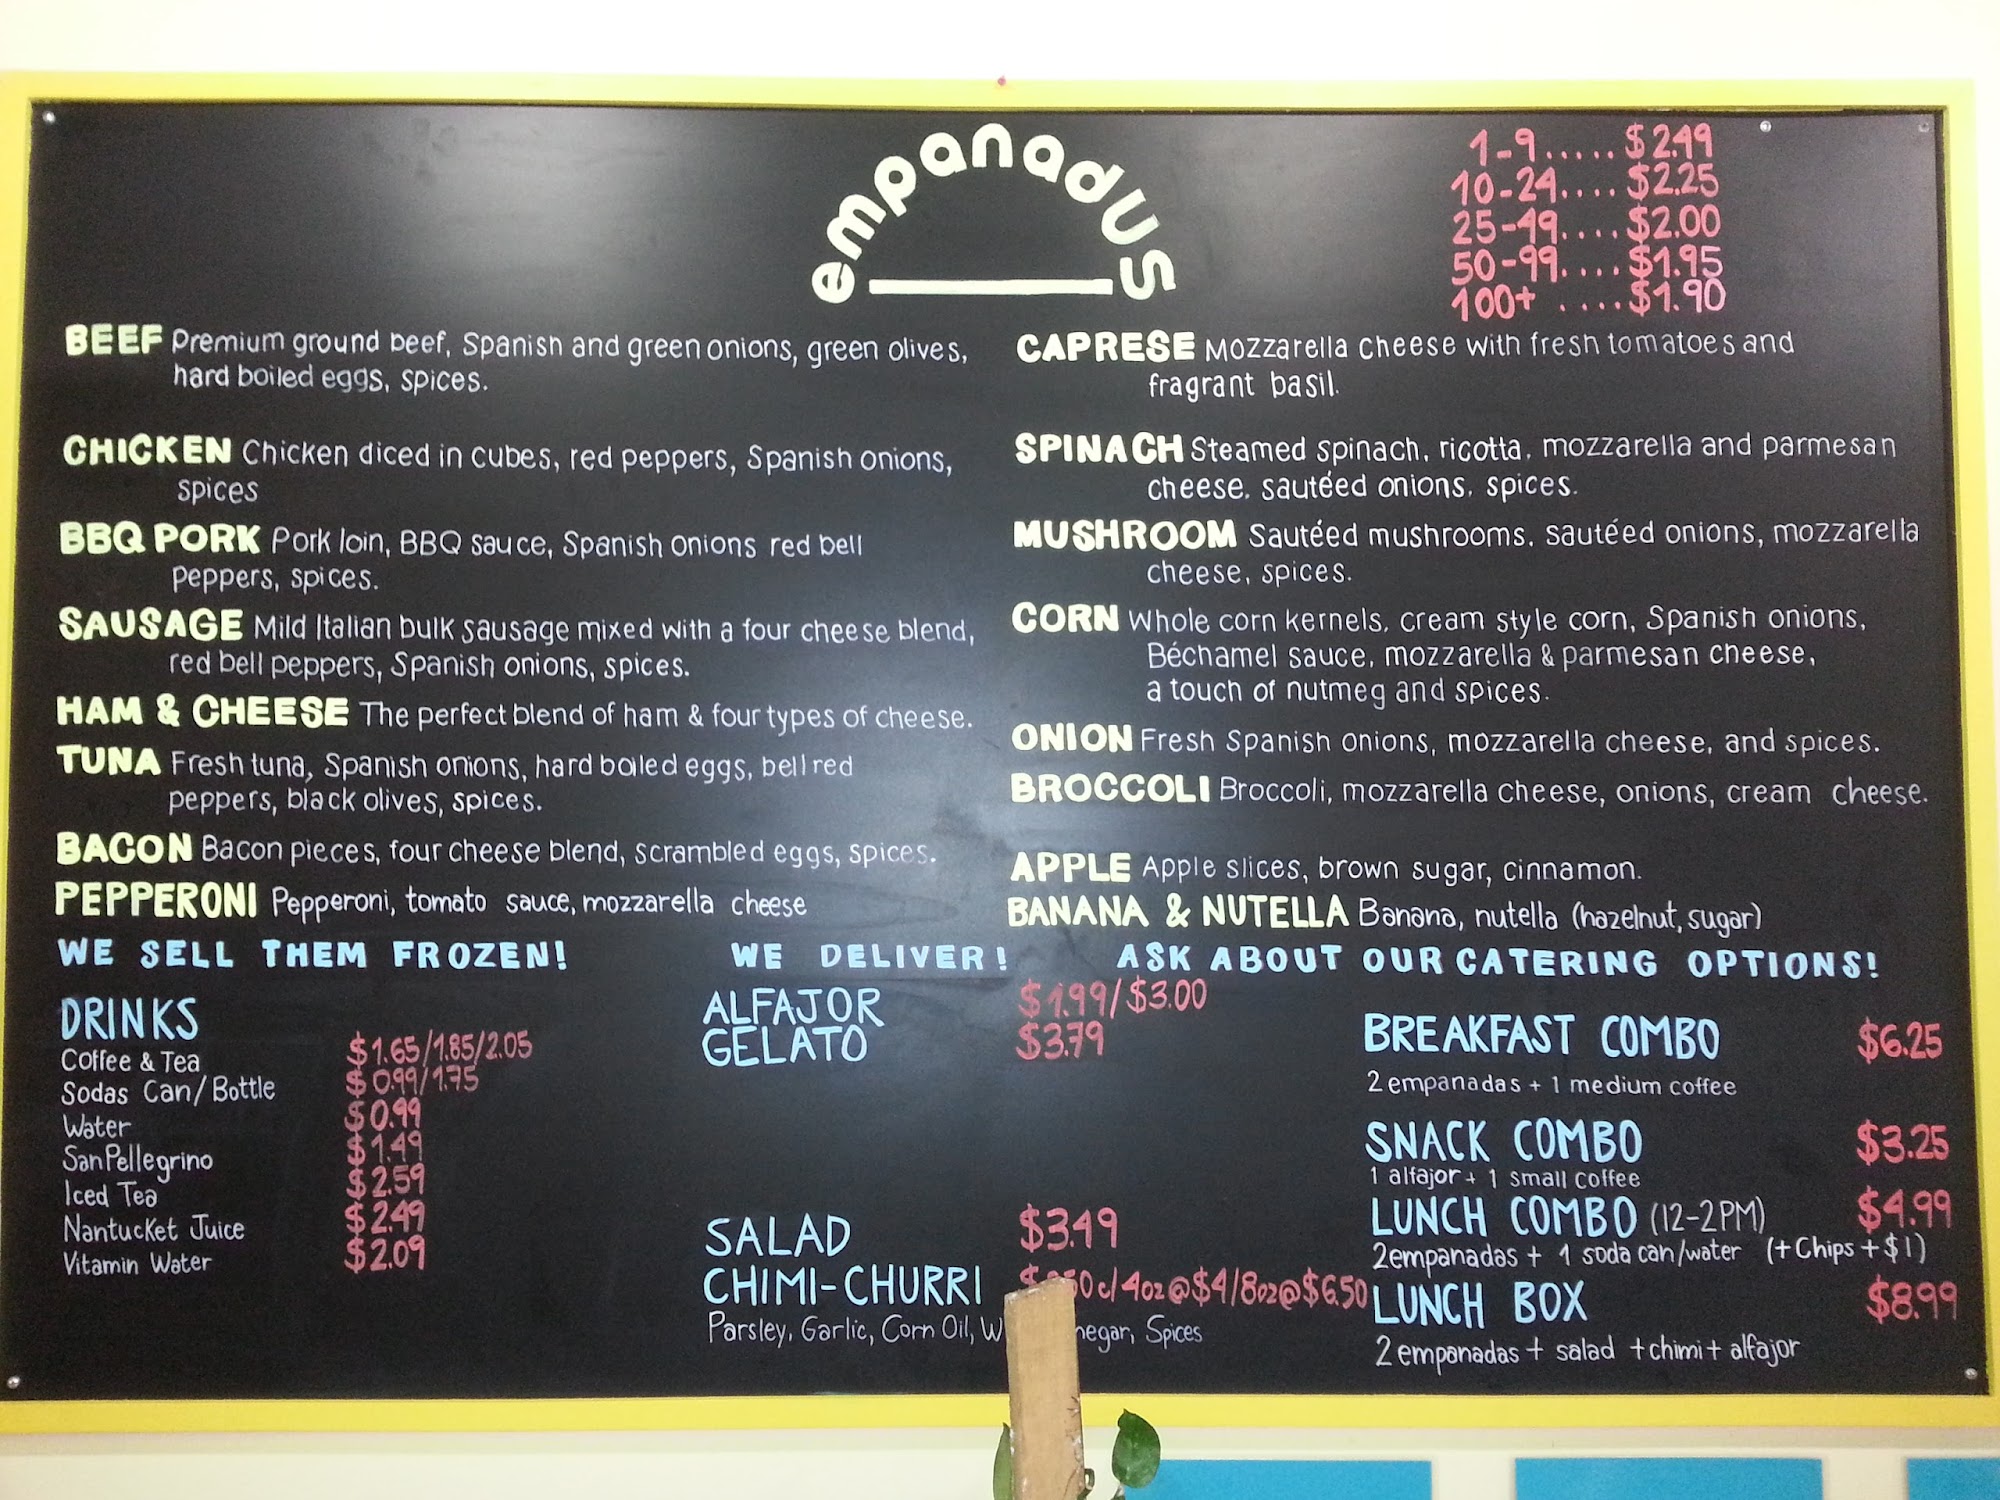 empanadus
1-9.....$2.49
10-24....$2.25
25-49....$2.00
50-99....$1.95
100+ ....$1.90
BEEF Premium ground beef, Spanish and green onions, green olives,
hard boiled eggs, spices.
CHICKEN Chicken diced in cubes, red peppers, Spanish onions,
spices
BBQ PORK Pork loin, BBQ sauce, Spanish onions red bell
peppers, spices.
SAUSAGE Mild Italian bulk sausage mixed with a four cheese blend,
red bell peppers, Spanish onions, spices.
HAM & CHEESE The perfect blend of ham & four types of cheese.
TUNA Fresh tuna, Spanish onions, hard boiled eggs, bell red
peppers, black olives, spices.
BACON Bacon pieces, four cheese blend, scrambled eggs, spices.
PEPPERONI Pepperoni, tomato sauce, mozzarella cheese
CAPRESE Mozzarella cheese with fresh tomatoes and
fragrant basil.
SPINACH Steamed spinach, ricotta, mozzarella and parmesan
cheese, sautéed onions, spices.
MUSHROOM Sautéed mushrooms, sautéed onions, mozzarella
cheese, spices.
CORN Whole corn kernels, cream style corn, Spanish onions,
Béchamel sauce, mozzarella & parmesan cheese,
a touch of nutmeg and spices.
ONION Fresh Spanish onions, mozzarella cheese, and spices.
BROCCOLI Broccoli, mozzarella cheese, onions, cream cheese.
APPLE Apple slices, brown sugar, cinnamon.
BANANA & NUTELLA Banana, nutella (hazelnut, sugar)
WE SELL THEM FROZEN! WE DELIVER! ASK ABOUT OUR CATERING OPTIONS!
DRINKS
Coffee & Tea $1.65/1.85/2.05
Sodas Can/Bottle $0.99/1.75
Water $0.99
SanPellegrino $1.49
Iced Tea $2.59
Nantucket Juice $2.49
Vitamin Water $2.09
ALFAJOR $1.99/$3.00
GELATO $3.79
SALAD $3.49
CHIMI-CHURRI 50 c/4oz@$4/8oz@$6.50
Parsley, Garlic, Corn Oil, Spices
BREAKFAST COMBO $6.25
2 empanadas + 1 medium coffee
SNACK COMBO $3.25
1 alfajor + 1 small coffee
LUNCH COMBO (12-2PM) $4.99
2empanadas + 1 soda can/water (+Chips+$1)
LUNCH BOX $8.99
2 empanadas + salad +chimi+ alfajor